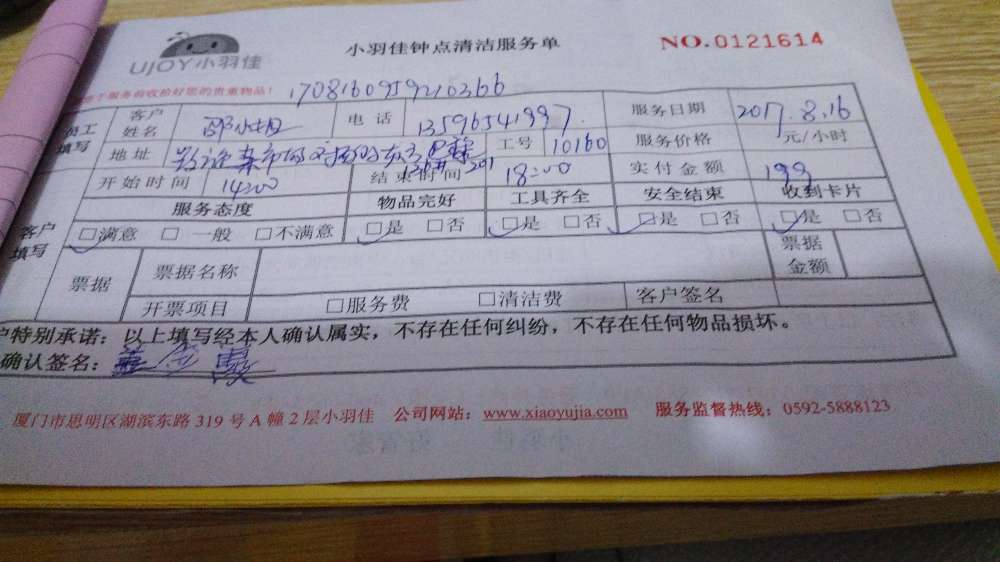 UJOY小羽佳 小羽佳钟点清洁服务单 NO.0121614
服务前收拾好您的贵重物品! 1708160959210366
工填写 客户姓名 电话 13596541997. 服务日期 2017.8.16
地址 工号 10160 服务价格 元/小时
开始时间 14:00 结束时间 18:00 实付金额 199
服务态度 物品完好 工具齐全 安全结束 收到卡片
客户填写 □满意 □一般 □不满意 □是 □否 □是 □否 □是 □否 □是 □否
票据 票据名称 票据金额
开票项目 □服务费 □清洁费 客户签名
户特别承诺：以上填写经本人确认属实，不存在任何纠纷，不存在任何物品损坏。
确认签名：
厦门市思明区湖滨东路 319 号 A 幢 2 层小羽佳 公司网站：www.xiaoyujia.com 服务监督热线：0592-5888123